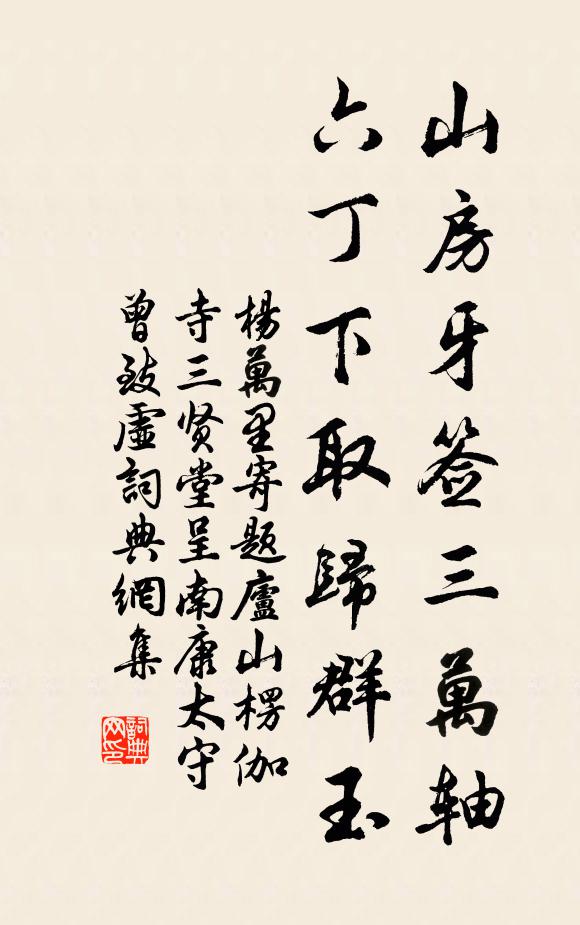 山房牙签三萬軸
六丁下取歸群玉
楊萬里寄题廬山楞伽
寺三贤堂呈南康太守
曾致虛詞典網集
詞典网印